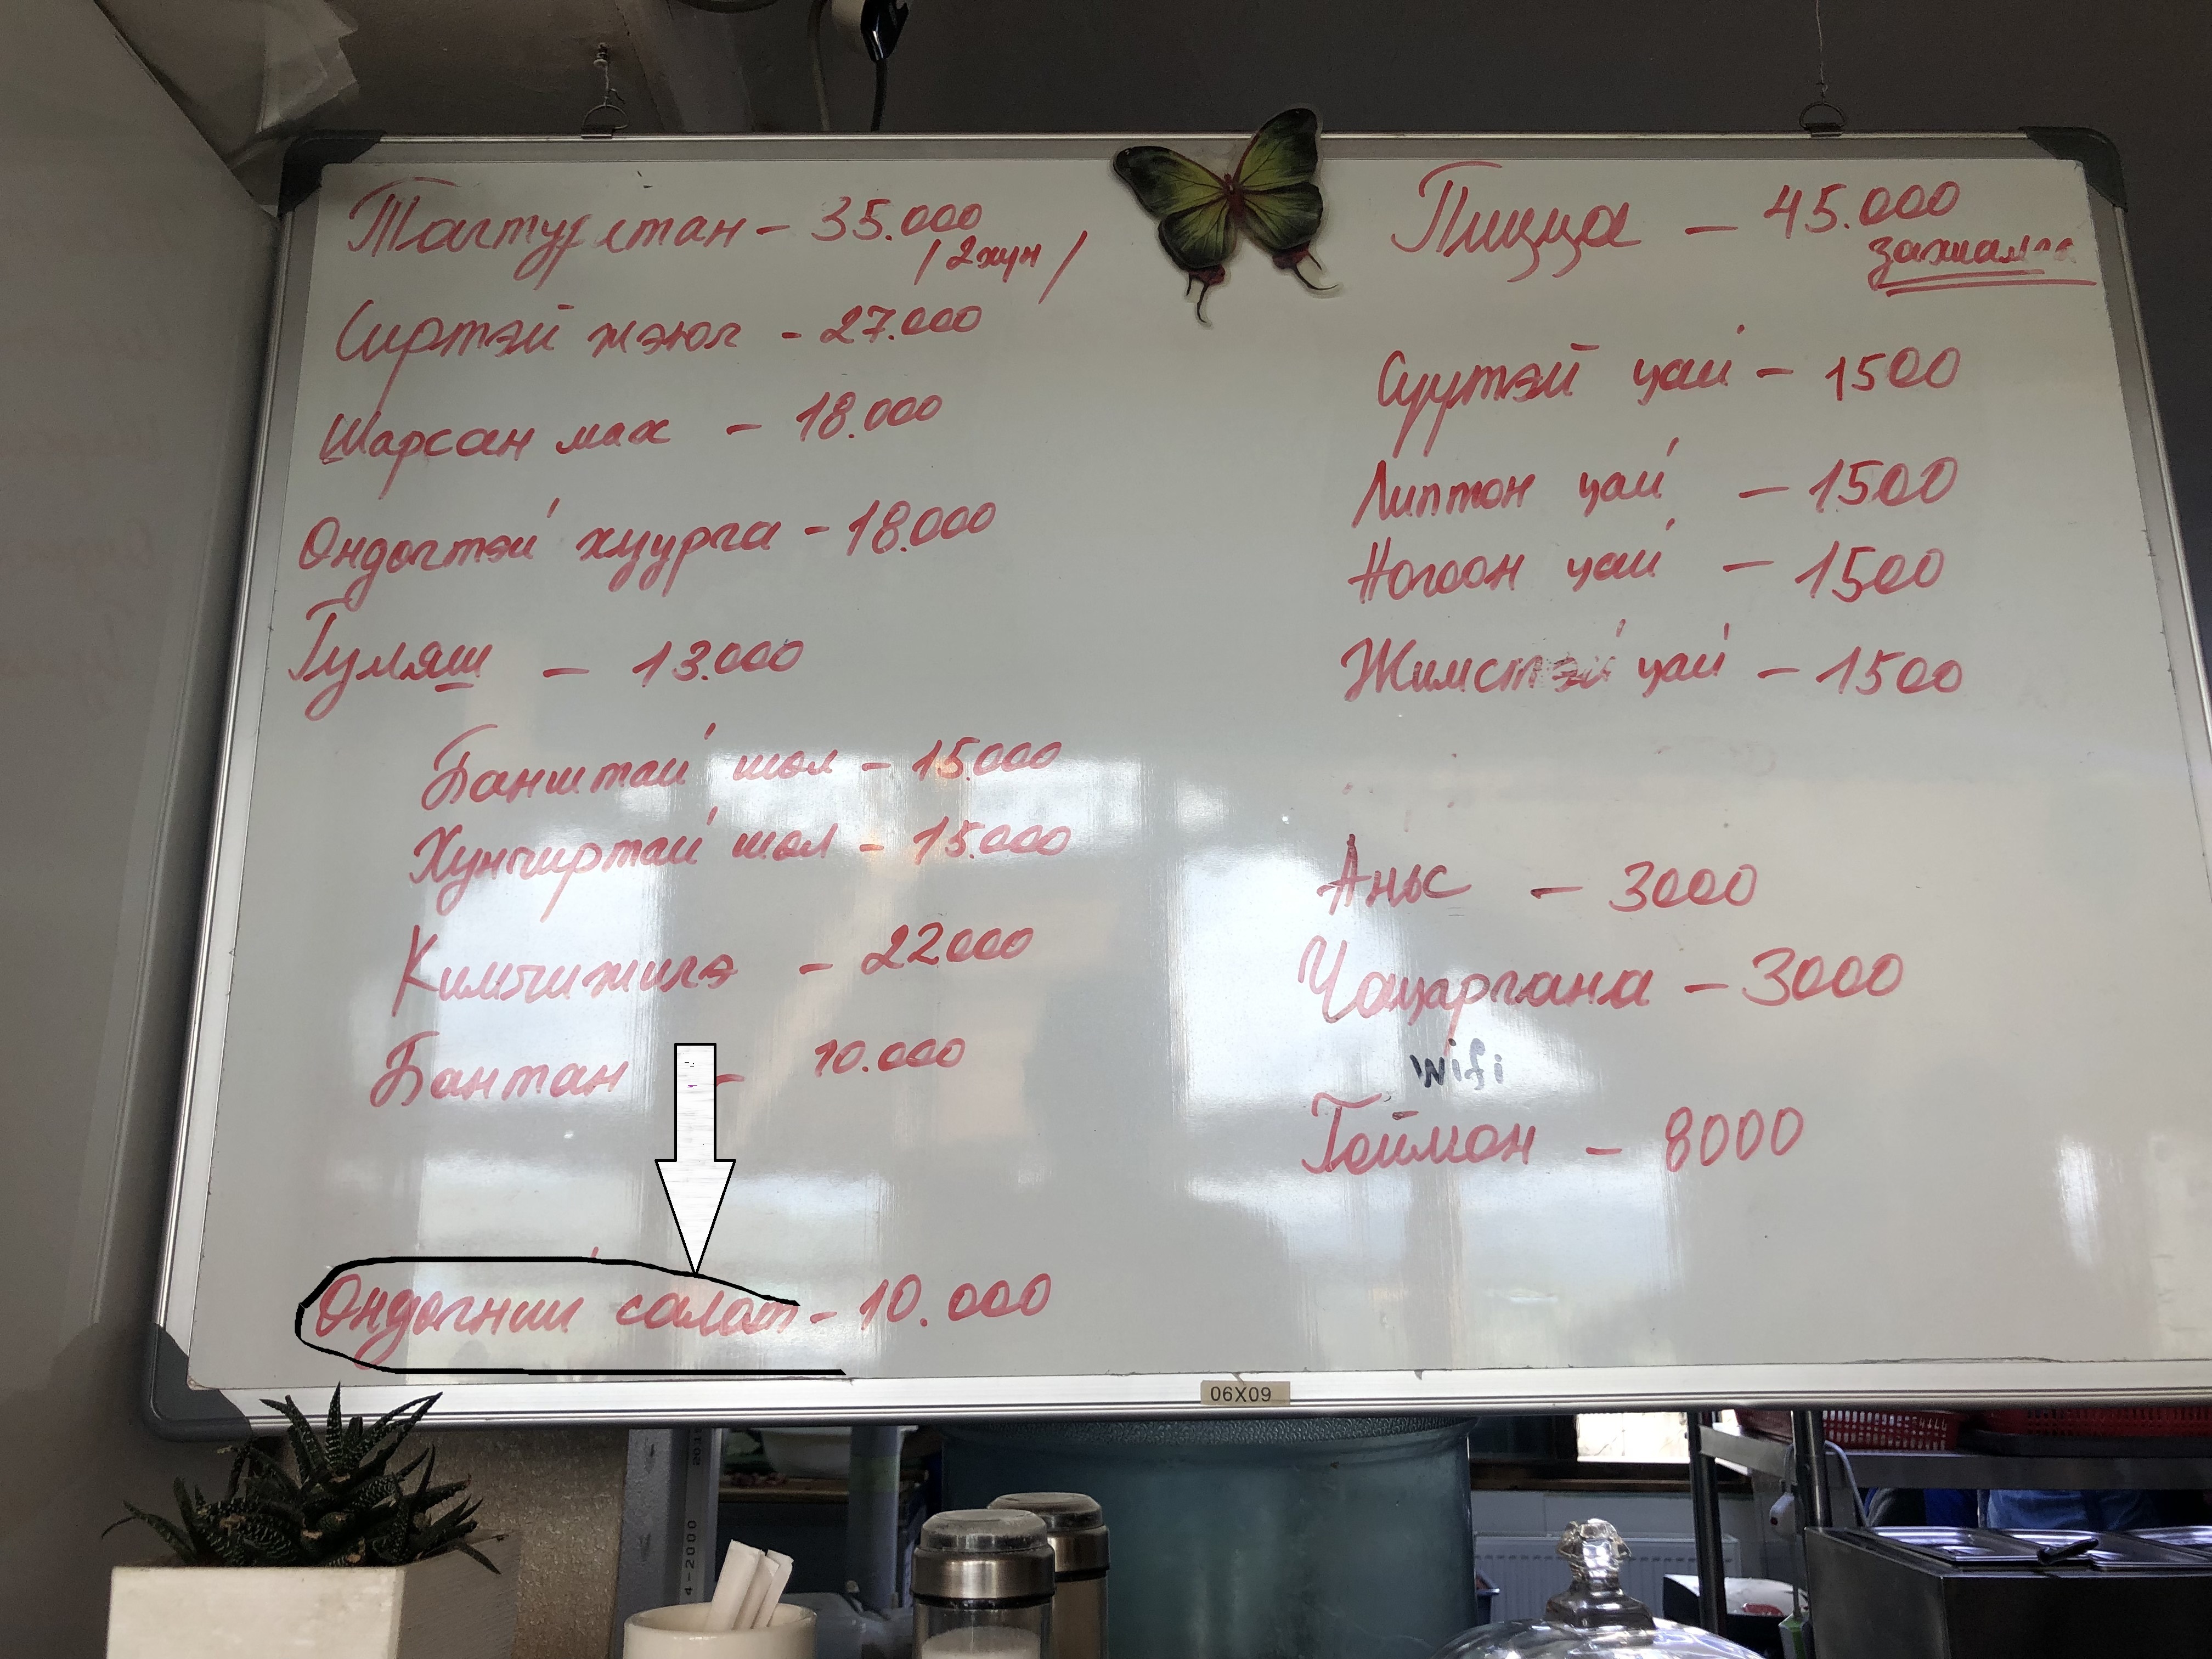 Тагтурстан – 35.000
/2хүн/
Сиртэй жэюг - 27.000
Шарсан мах - 18.000
Ондогтэй хуурга - 18.000
Гуляш - 13.000
Банштай шөл - 15.000
Хунчиртай шөл - 15.000
Кимчижигэ - 22000
Бантан - 10.000
Ондогний салат - 10.000
Пицца - 45.000
захиалга
Сүүтэй цай - 1500
Липтон цай - 1500
Ногоон цай - 1500
Жимстэй цай - 1500
Аньс - 3000
Чацаргана - 3000
wifi
Гоймон - 8000
06X09
4-2000